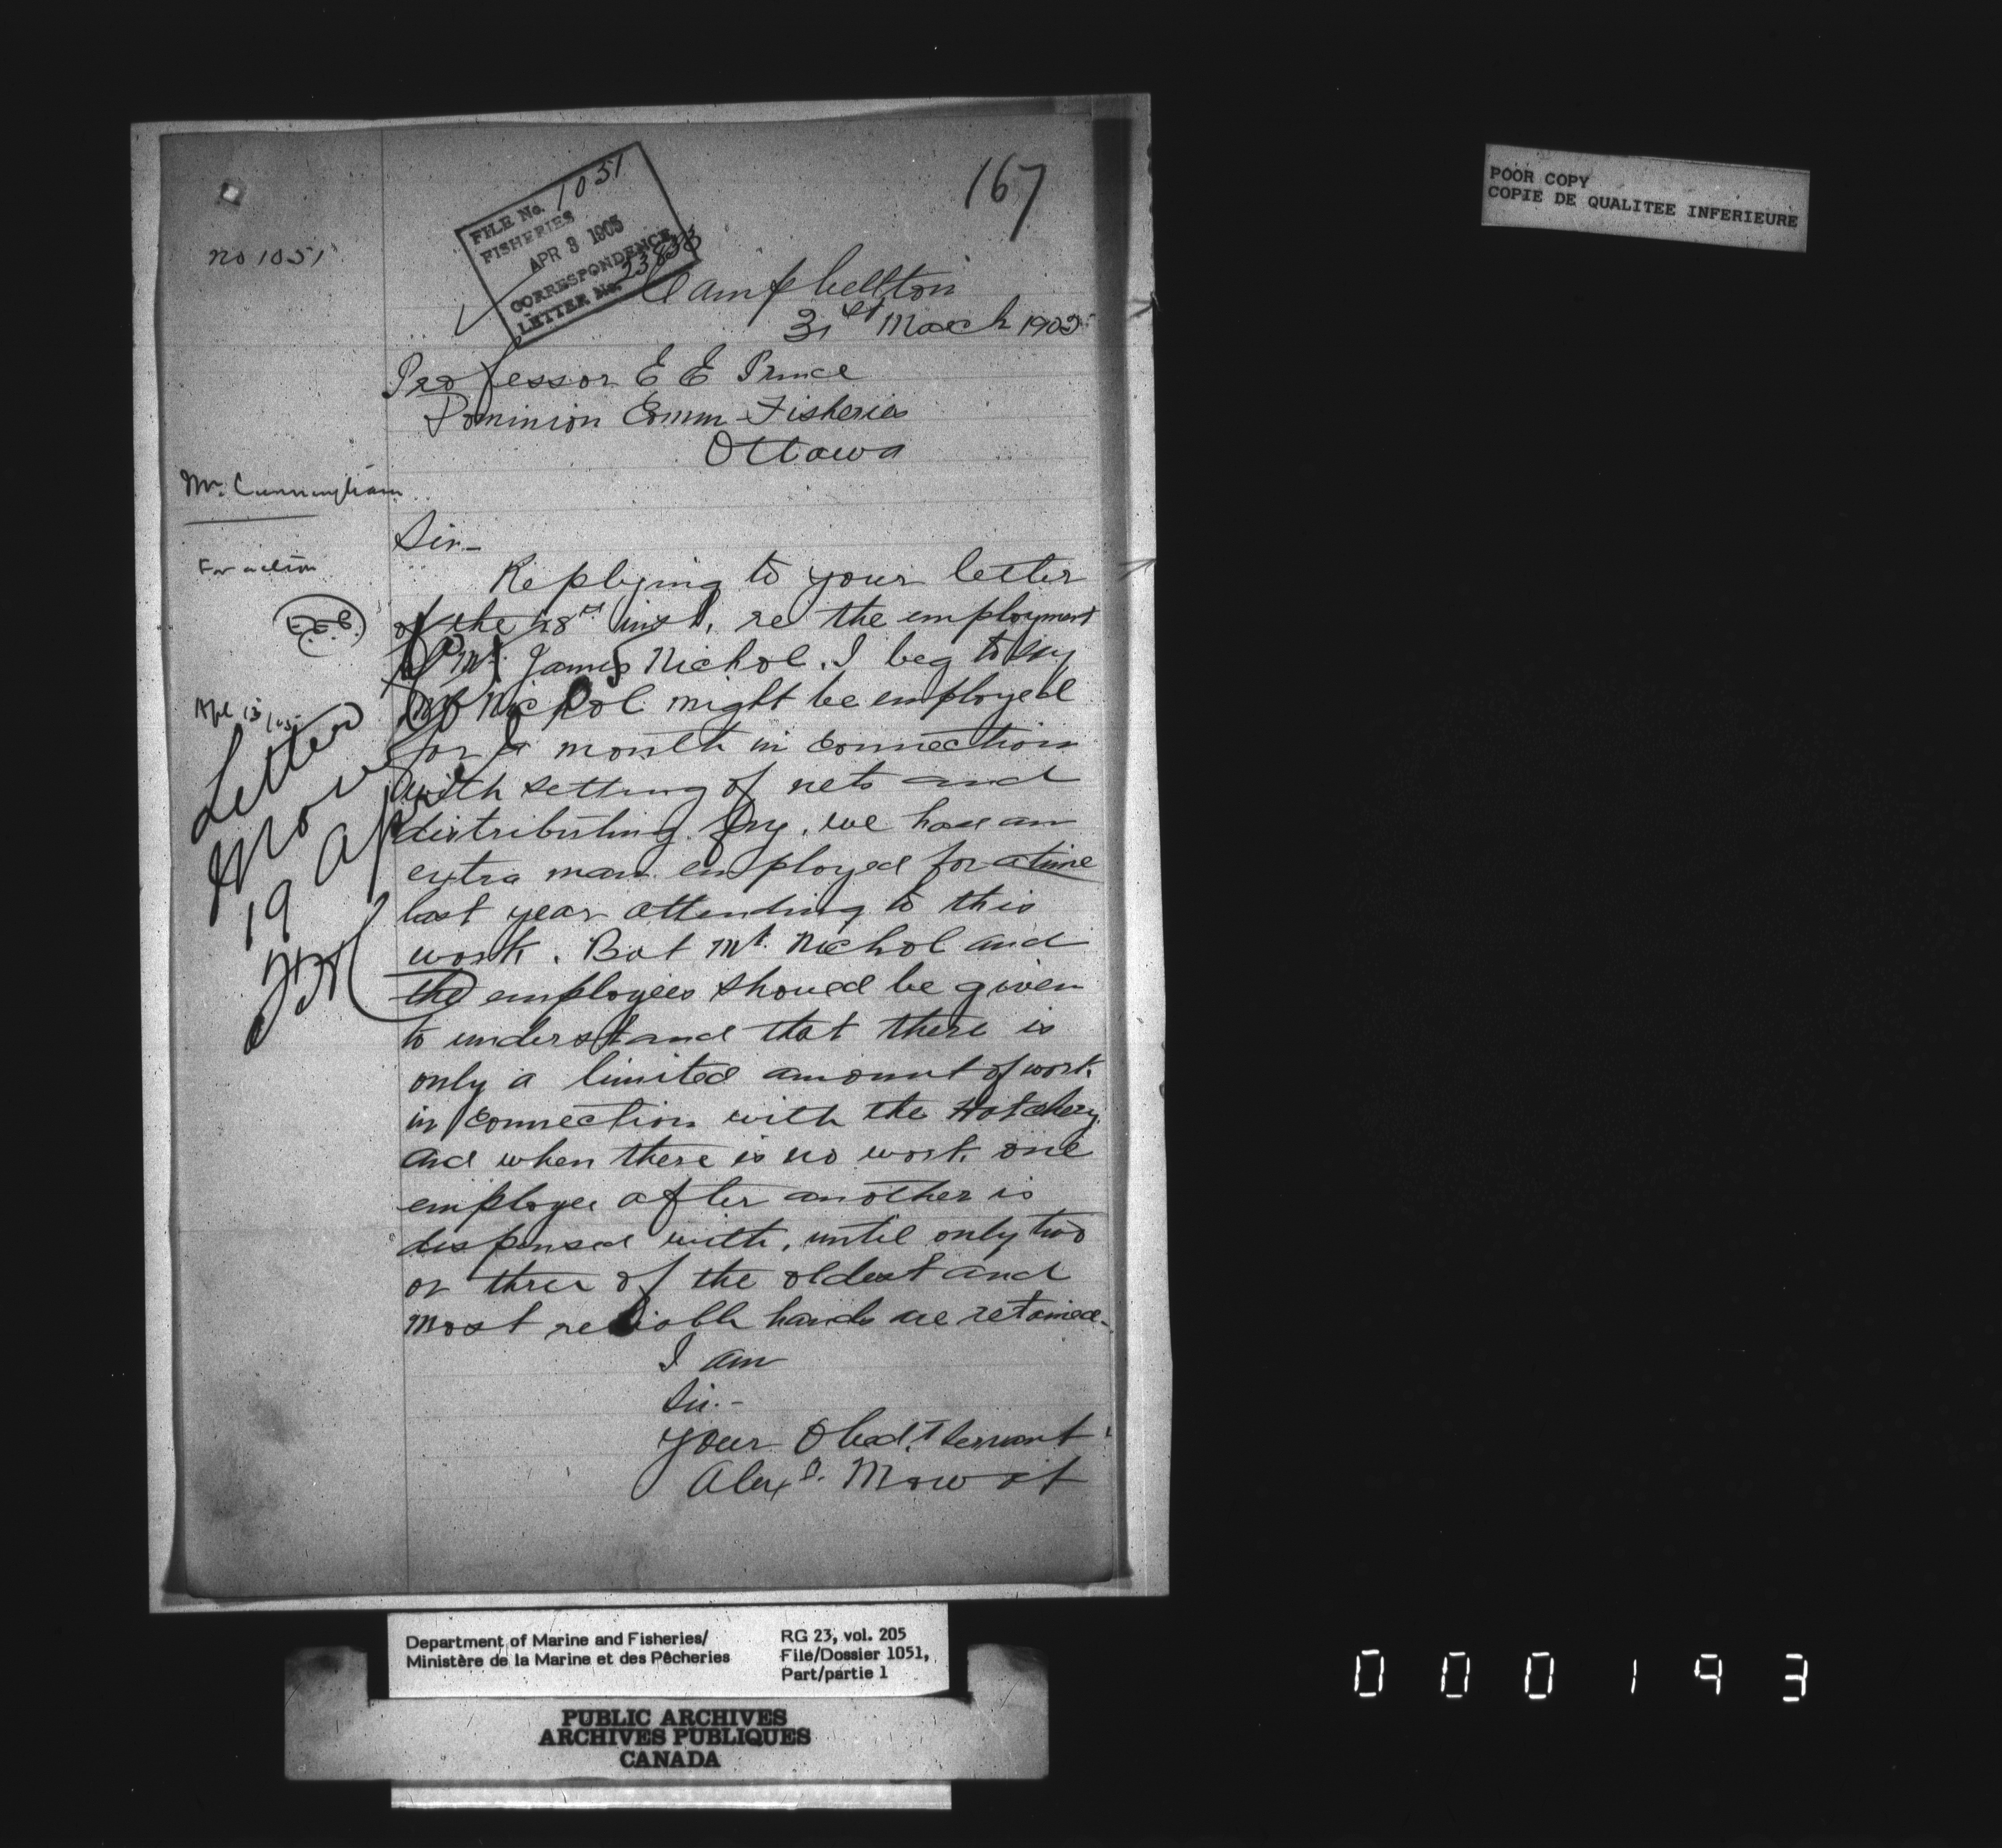 167
FILE No. 1051
FISHERIES
APR 3 1905
CORRESPONDENCE
LETTER No.
no 1051
Campbellton
31st March 1905
Professor E E Prince
Dominion Comm Fisheries
Ottawa
Mr. Cunningham
For action
E.E.P.
Apl 13/05
Letter
Mowat
19 April
Sir-
Replying to your letter
of the 28th inst, re the employment
of Mr. James Nichol. I beg to say
Mr Nichol might be employed
for a month in connection
with setting of nets and
distributing fry. we had an
extra man employed for a time
last year attending to this
work. But Mr. Nichol and
the employees should be given
to understand that there is
only a limited amount of work
in connection with the Hatchery
and when there is no work one
employee after another is
dispensed with, until only two
or three of the oldest and
most reliable hands are retained-
I am
Sir.-
Your Obedt Servant
Alexr. Mowat
POOR COPY
COPIE DE QUALITEE INFERIEURE
Department of Marine and Fisheries/
Ministère de la Marine et des Pêcheries
RG 23, vol. 205
File/Dossier 1051,
Part/partie 1
PUBLIC ARCHIVES
ARCHIVES PUBLIQUES
CANADA
000193